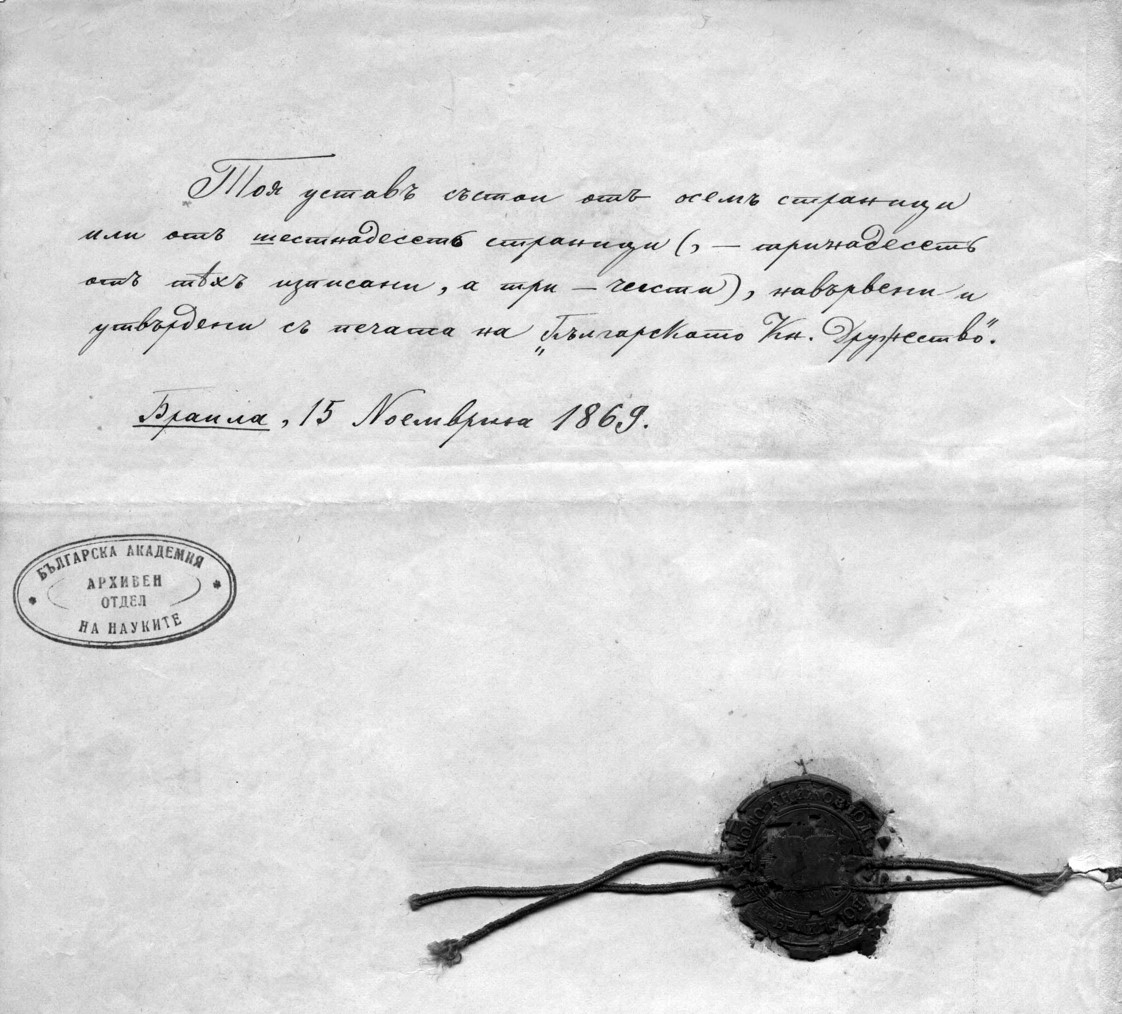 Тоя уставъ състои отъ осемъ страници
или отъ шестнадесеть страници (, — тринадесеть
отъ тѣхъ изписани, а три — чисти), навървени и
утвърдени съ печата на „Българското Кн. Дружество".
Браила, 15 Ноемврия 1869.
БЪЛГАРСКА АКАДЕМИЯ
АРХИВЕН
ОТДЕЛ
НА НАУКИТЕ